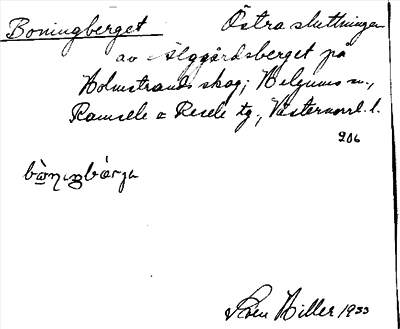 Boningberget Östra sluttningen
av Älggårdsberget på
Holmstrands skog; Helgums sn,
Ramsele o Resele tg, Västernorrl. l.
206
bòniŋbærja
Hiller 1933